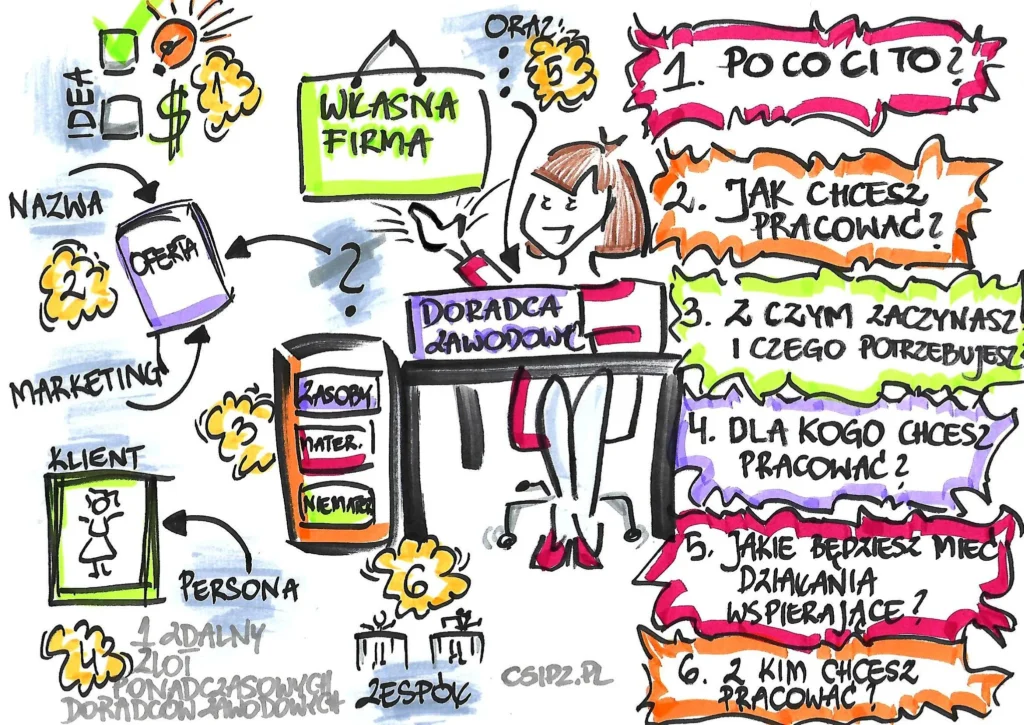 IDEA
1
WŁASNA
FIRMA
ORAZ:
5
NAZWA
2
OFERTA
?
MARKETING
DORADCA
ZAWODOWY
3
ZASOBY
MATER.
NIEMATER.
KLIENT
PERSONA
4
1 ZDALNY
ZLOT
PONADCZASOWYCH
DORADCÓW ZAWODOWYCH
6
ZESPÓŁ
CSIPZ.PL
1. PO CO CI TO?
2. JAK CHCESZ
PRACOWAĆ?
3. Z CZYM ZACZYNASZ
I CZEGO POTRZEBUJESZ
4. DLA KOGO CHCESZ
PRACOWAĆ?
5. JAKIE BĘDZIESZ MIEĆ
DZIAŁANIA
WSPIERAJĄCE?
6. Z KIM CHCESZ
PRACOWAĆ?